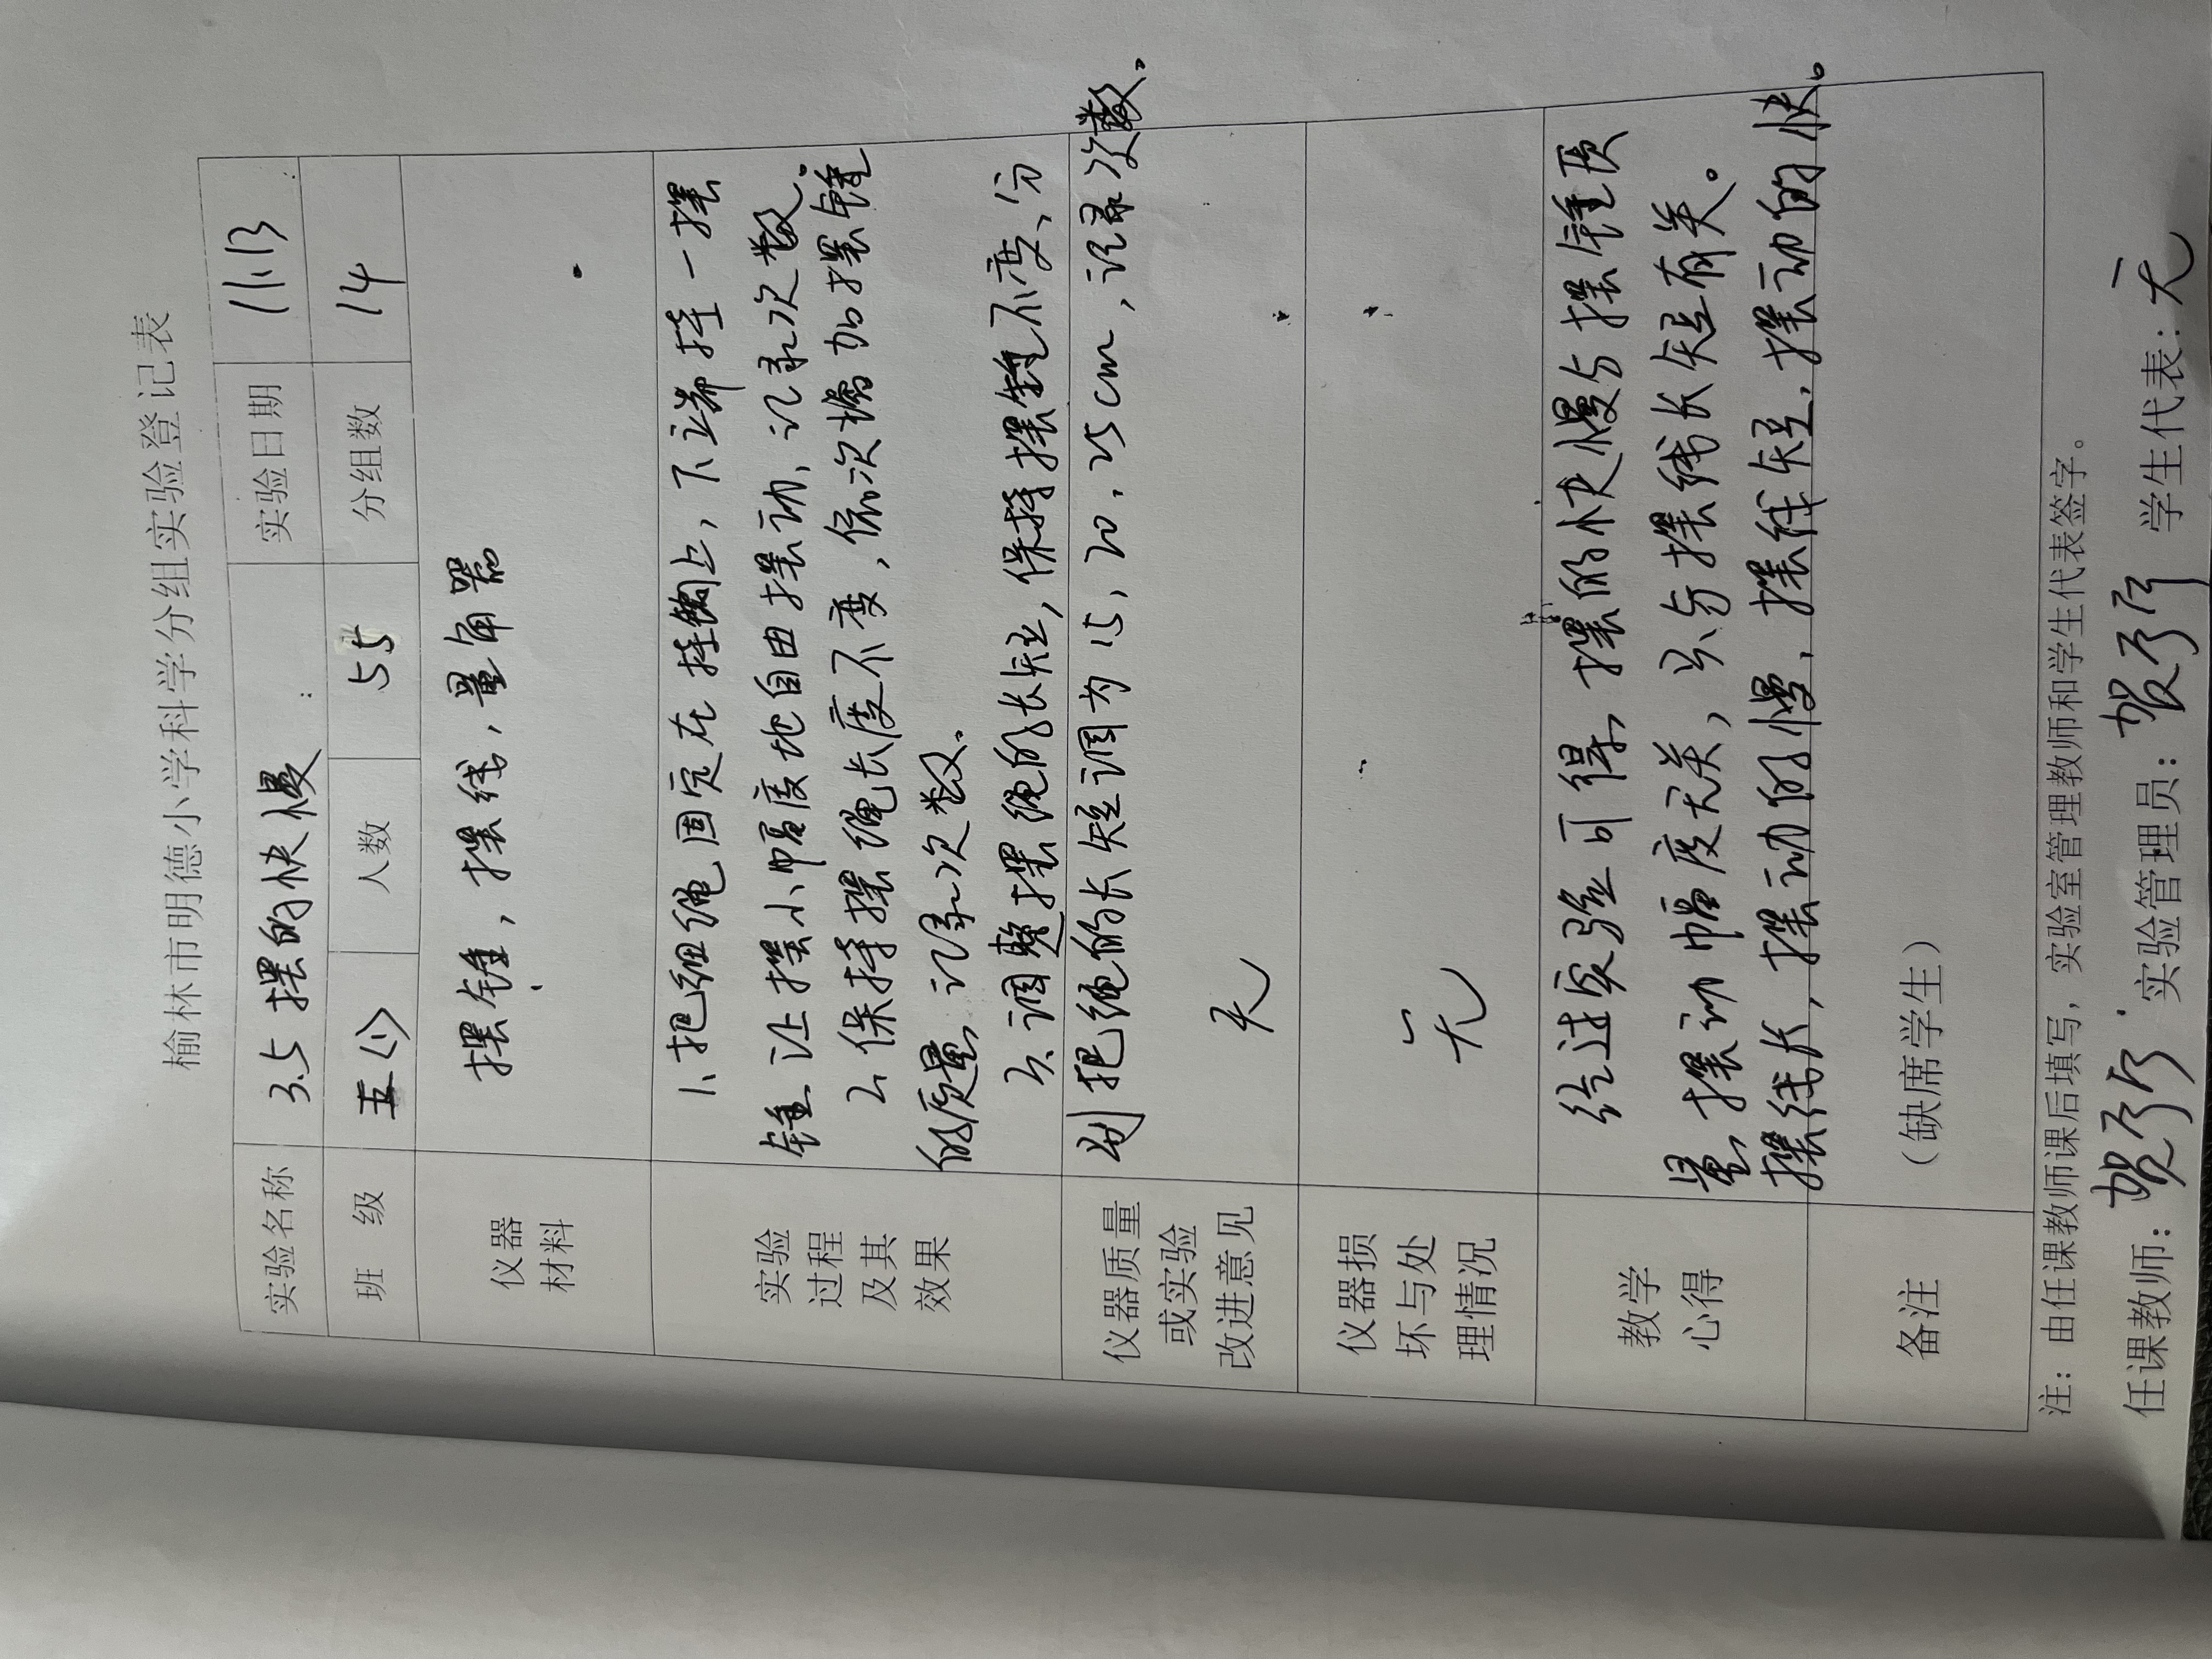 榆林市明德小学科学分组实验登记表
实验名称 3.5 摆的快慢 实验日期 11.13
班 级 五(1) 人数 55 分组数 14
仪器
材料
摆锤，摆线，量角器
实验
过程
及其
效果
1、把细绳固定在挂钩上，下端挂一摆
锤、让摆小幅度地自由摆动、记录次数。
2、保持摆绳长度不变，依次增加摆锤
的质量、记录次数。
3、调整摆绳的长短，保持摆锤不变、分
别把绳的长短调为15，20，25cm，记录次数。
仪器质量
或实验
改进意见
无
仪器损
坏与处
理情况
无
教学
心得
经过实验可得，摆的快慢与摆锤质
量、摆动幅度无关，只与摆线长短有关。
摆线长，摆动的慢，摆线短，摆动的快。
备注
（缺席学生）
注：由任课教师课后填写，实验室管理教师和学生代表签字。
任课教师： 实验管理员： 学生代表：无